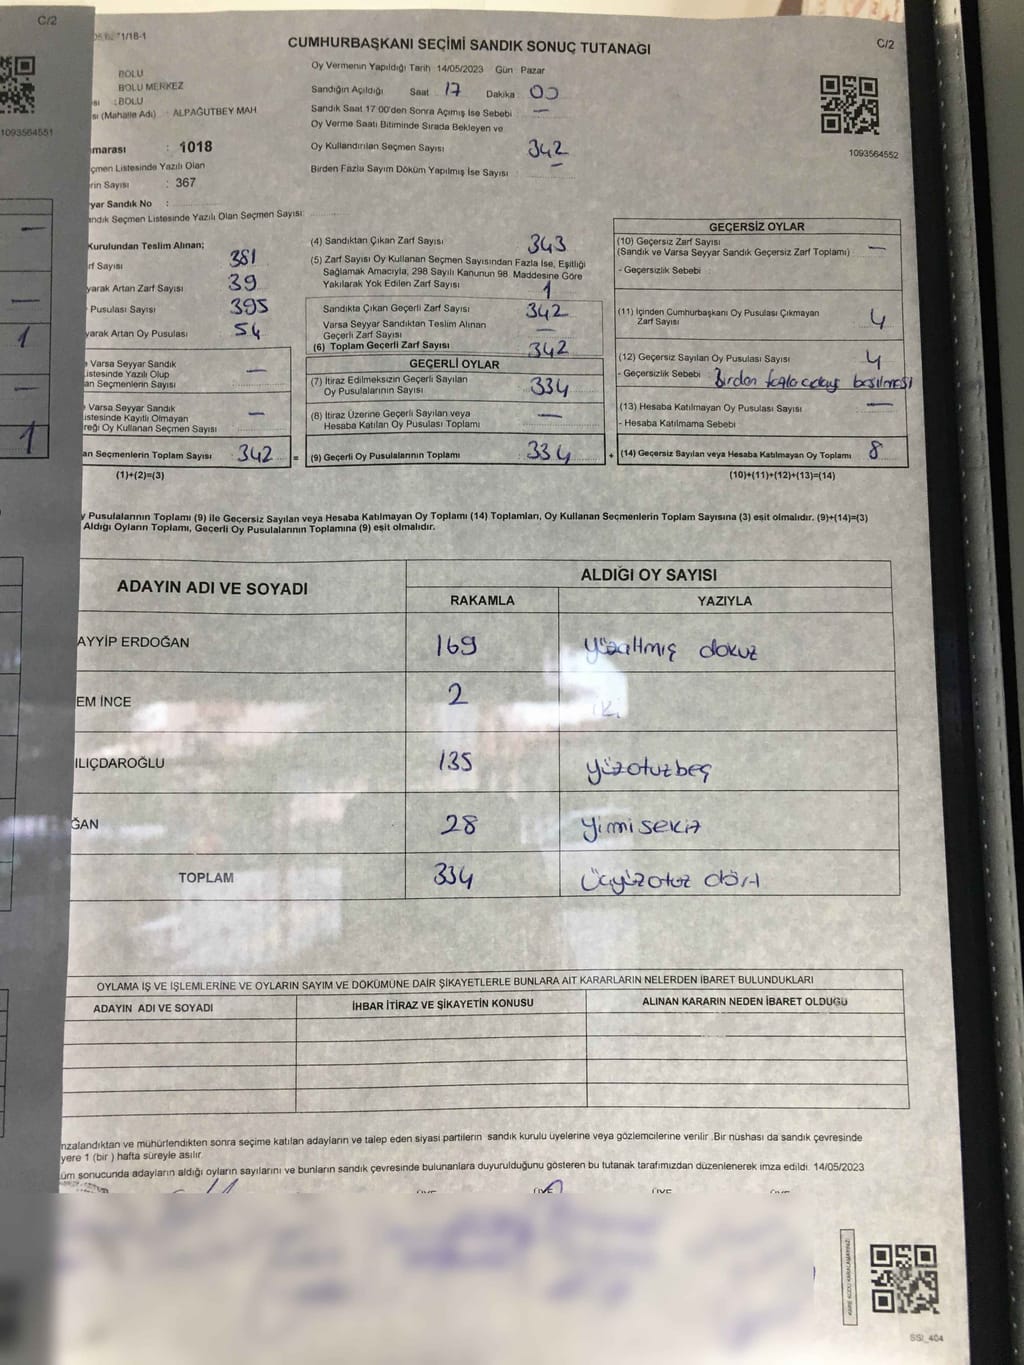 C/2
1/18-1
CUMHURBAŞKANI SEÇİMİ SANDIK SONUÇ TUTANAGI
C/2
BOLU
BOLU MERKEZ
BOLU
sı (Mahalle Adı) : ALPAĞUTBEY MAH
1093564551
marası : 1018
çmen Listesinde Yazılı Olan
rin Sayısı : 367
yar Sandık No :
ndık Seçmen Listesinde Yazılı Olan Seçmen Sayısı:
Oy Vermenin Yapıldığı Tarih 14/05/2023 Gün Pazar
Sandığın Açıldığı Saat 17 Dakika 00
Sandık Saat 17:00'den Sonra Açımış İse Sebebi —
Oy Verme Saati Bitiminde Sırada Bekleyen ve
Oy Kullandırılan Seçmen Sayısı 342
Birden Fazla Sayım Döküm Yapılmış İse Sayısı
1093564552
Kurulundan Teslim Alınan;
rf Sayısı 381
yarak Artan Zarf Sayısı 39
Pusulası Sayısı 395
yarak Artan Oy Pusulası 54
Varsa Seyyar Sandık
Listesinde Yazılı Olup
an Seçmenlerin Sayısı —
Varsa Seyyar Sandık
istesinde Kayıtlı Olmayan
reği Oy Kullanan Seçmen Sayısı —
an Seçmenlerin Toplam Sayısı 342
(1)+(2)=(3)
(4) Sandıktan Çıkan Zarf Sayısı 343
(5) Zarf Sayısı Oy Kullanan Seçmen Sayısından Fazla İse, Eşitliği
Sağlamak Amacıyla, 298 Sayılı Kanunun 98. Maddesine Göre
Yakılarak Yok Edilen Zarf Sayısı 1
Sandıkta Çıkan Geçerli Zarf Sayısı 342
Varsa Seyyar Sandıktan Teslim Alınan
Geçerli Zarf Sayısı —
(6) Toplam Geçerli Zarf Sayısı 342
GEÇERLİ OYLAR
(7) İtiraz Edilmeksizin Geçerli Sayılan
Oy Pusulalarının Sayısı 334
(8) İtiraz Üzerine Geçerli Sayılan veya
Hesaba Katılan Oy Pusulası Toplamı —
= (9) Geçerli Oy Pusulalarının Toplamı 334
GEÇERSİZ OYLAR
(10) Geçersiz Zarf Sayısı
(Sandık ve Varsa Seyyar Sandık Geçersiz Zarf Toplamı) —
- Geçersizlik Sebebi
(11) İçinden Cumhurbaşkanı Oy Pusulası Çıkmayan
Zarf Sayısı 4
(12) Geçersiz Sayılan Oy Pusulası Sayısı 4
- Geçersizlik Sebebi Birden fazla aday basılması
(13) Hesaba Katılmayan Oy Pusulası Sayısı —
- Hesaba Katılmama Sebebi
+ (14) Geçersiz Sayılan veya Hesaba Katılmayan Oy Toplamı 8
(10)+(11)+(12)+(13)=(14)
y Pusulalarının Toplamı (9) ile Geçersiz Sayılan veya Hesaba Katılmayan Oy Toplamı (14) Toplamları, Oy Kullanan Seçmenlerin Toplam Sayısına (3) eşit olmalıdır. (9)+(14)=(3)
Aldığı Oyların Toplamı, Geçerli Oy Pusulalarının Toplamına (9) eşit olmalıdır.
ADAYIN ADI VE SOYADI
ALDIĞI OY SAYISI
RAKAMLA YAZIYLA
AYYİP ERDOĞAN 169 yüzaltmış dokuz
EM İNCE 2 iki
ILIÇDAROĞLU 135 yüzotuzbeş
ĞAN 28 yimisekiz
TOPLAM 334 üçyüzotuz dört
OYLAMA İŞ VE İŞLEMLERİNE VE OYLARIN SAYIM VE DÖKÜMÜNE DAİR ŞİKAYETLERLE BUNLARA AİT KARARLARIN NELERDEN İBARET BULUNDUKLARI
ADAYIN ADI VE SOYADI İHBAR İTİRAZ VE ŞİKAYETİN KONUSU ALINAN KARARIN NEDEN İBARET OLDUĞU
nzalandıktan ve mühürlendikten sonra seçime katılan adayların ve talep eden siyasi partilerin sandık kurulu üyelerine veya gözlemcilerine verilir. Bir nüshası da sandık çevresinde
yere 1 (bir ) hafta süreyle asılır.
üm sonucunda adayların aldığı oyların sayılarını ve bunların sandık çevresinde bulunanlara duyurulduğunu gösteren bu tutanak tarafımızdan düzenlenerek imza edildi. 14/05/2023
SSI_404